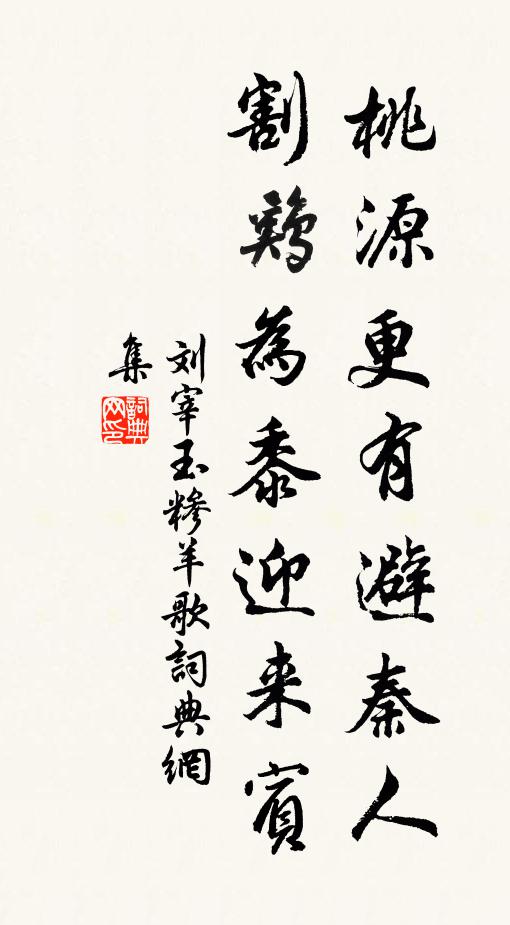 桃源更有避秦人
割鷄為黍迎来賓
刘宰玉糁羊歌詞典網
集
詞典网印